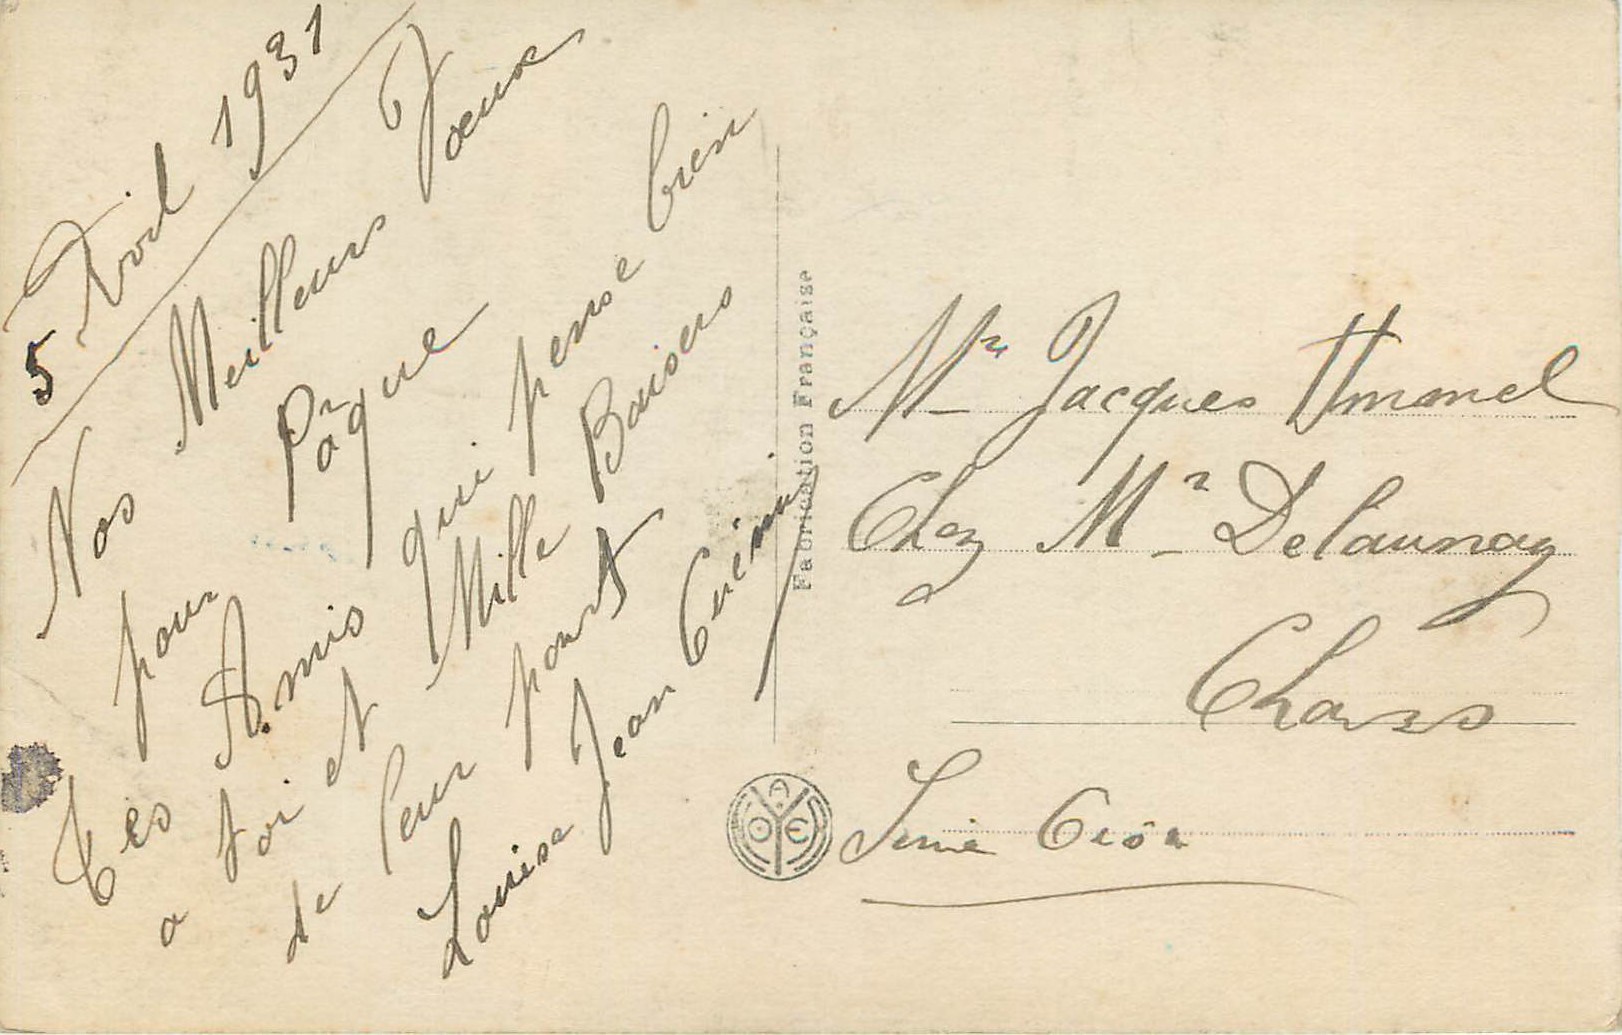 5 Avril 1931
Nos Meilleurs Vœux
pour Pâque
Tes Amis qui pense bien
a toi et Mille Baisers
de leur part
Louise Jean
Fabrication Française
Mr Jacques
Chez Mr Delaunay
Chars
Seine Oise